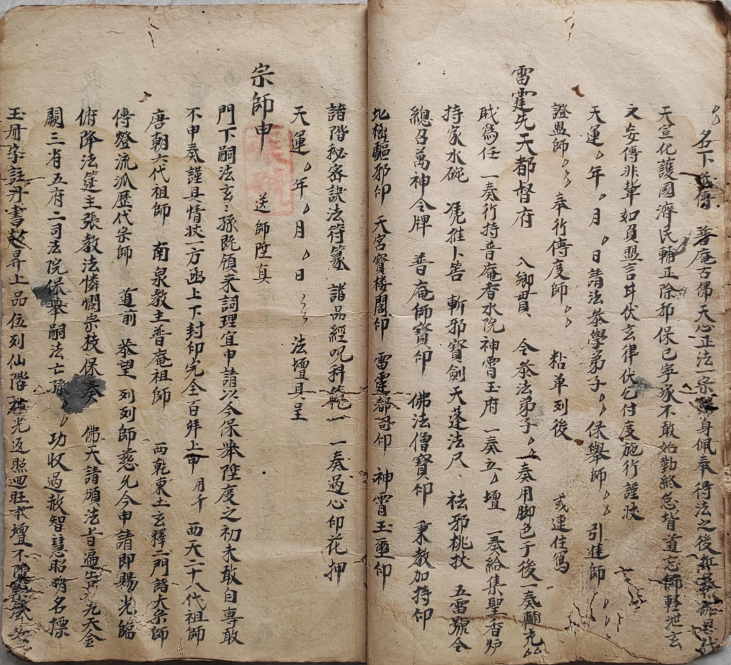 名下 普庵古佛天心正法一宗 身佩奉待法之後
天宣化護國濟民輔正除邪保己寧家不敢始勤終怠背道忘師輕泄玄
文妄傳非輩如負盟言甘伏玄律伏乞付度施行謹狀
天運 年 月 日請法叅學弟子 保舉師 引進師
證盟師 奉行傳度師 粘单列後 或連住寫
雷霆先天都督府 入鄉貫 令叅法弟子 奏用脚色于後 奏
職為任 一奏行持普庵香水院神霄玉府 一奏立 壇 一奏給集聖香炉
持家水碗 筶 斬邪寶劍天蓬法尺 祛邪桃杖 五雷號令
總召萬神令牌 普庵師寶印 佛法僧寶印 秉教加持印
北極驅邪印 天宮寶楼閣印 雷霆都司印 神霄玉 印
諸階秘宻訣法符篆 諸品經呪科範 一一奏過心印花押
天運 年 月 日 法壇具呈
宗師申 送師陞真
門下嗣法玄 孫既領来詞理宜申請以今保舉陞度之初未敢自專敢
不申奏謹具情狀一方函上下封印完全百拜上申 西天二十八代祖師
唐朝六代祖師 南泉教主普庵祖師 西乾東土玄釋二門諸大宗師
傳燈流派歷代宗師 道前 恭望 列列師慈允今申請即賜光臨
俯降法筵主張教法憐憫宗枝保奏 佛天請頒法旨遍告 九天金
闕三省五府二司法院保舉嗣法亡孫 功收過赦智慧昭明名標
玉册字註丹書超昇上品位列仙階 光返照 旺 壇不